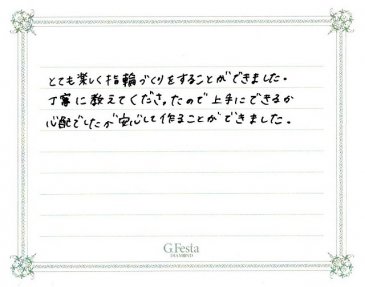 とても楽しく指輪づくりをすることができました。
丁寧に教えてくださったので上手にできるか
心配でしたが安心して作ることができました。
G.Festa
DIAMOND